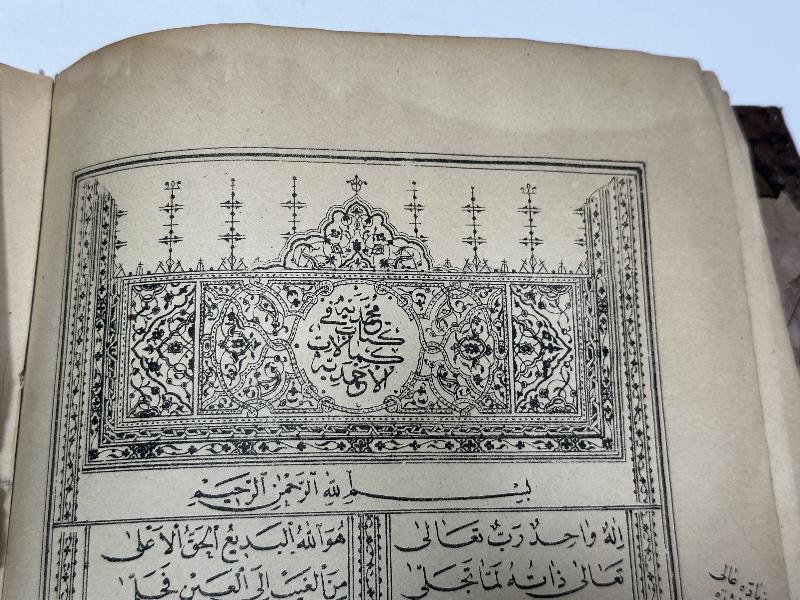 محمديه في
كتاب
كمالات
الاحمديه
بِسْمِ اللهِ الرَّحْمٰنِ الرَّحِيمِ
اِلٰهٌ وَاحِدٌ رَبٌّ تَعَالٰى هُوَ اللهُ الْبَدِيعُ الْحَقُّ الْاَعْلٰى
تَعَالٰى ذَاتُهُ لَمَّا تَجَلّٰى مِنَ الْغَيْبِ اِلَى الْعَيْنِ فَجَلّٰى